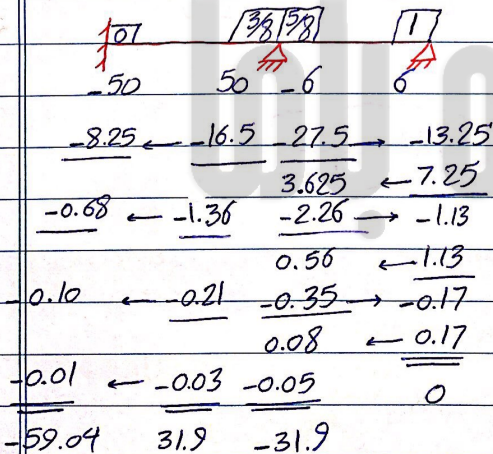 0 3/8 5/8 1
-50 50 -6 6
-8.25 ← -16.5 -27.5 → -13.25
3.625 ← 7.25
-0.68 ← -1.36 -2.26 → -1.13
0.56 ← 1.13
-0.10 ← -0.21 -0.35 → -0.17
0.08 ← 0.17
-0.01 ← -0.03 -0.05 0
-59.04 31.9 -31.9